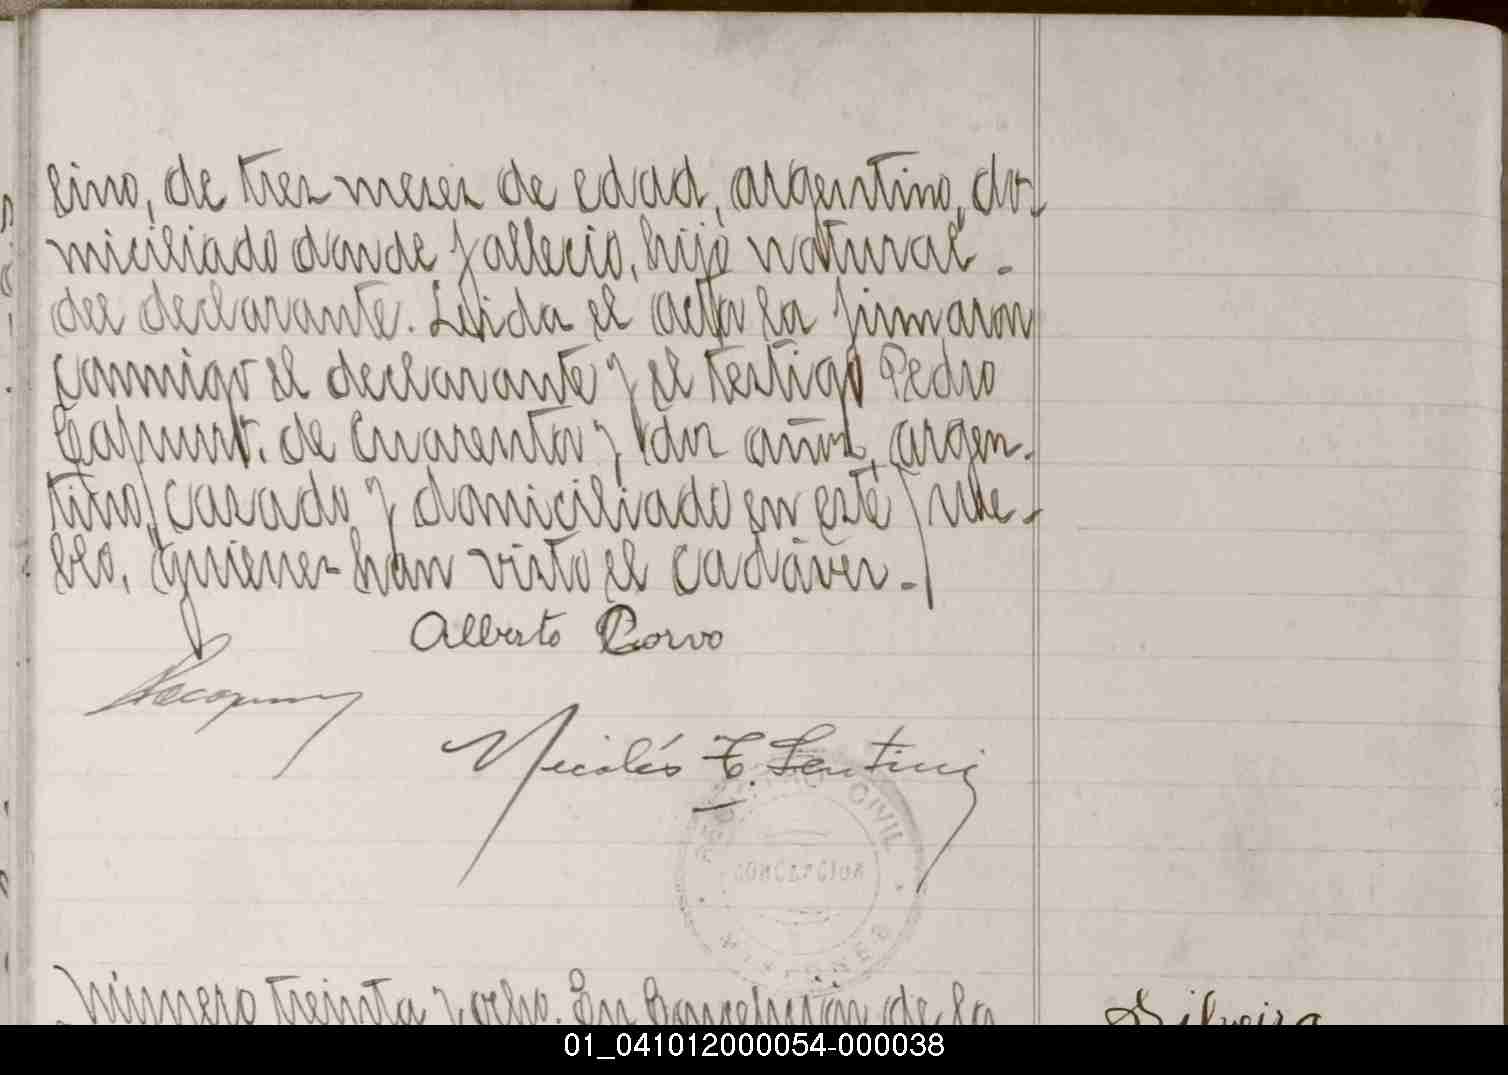 sino, de tres meses de edad, argentino, do-
miciliado donde fallecio, hijo natural.
del declarante. Leida el acta la firmaron
conmigo el declarante y el testigo Pedro
de cuarenta y dos años, argen-
tino, casado y domiciliado en este pue-
blo, quienes han visto el cadáver.-
Alberto Corvo
Nicolás
REGISTRO CIVIL
CONCEPCION
MISIONES
Número treinta y ocho. En Concepción de la
Silveira
01_041012000054-000038